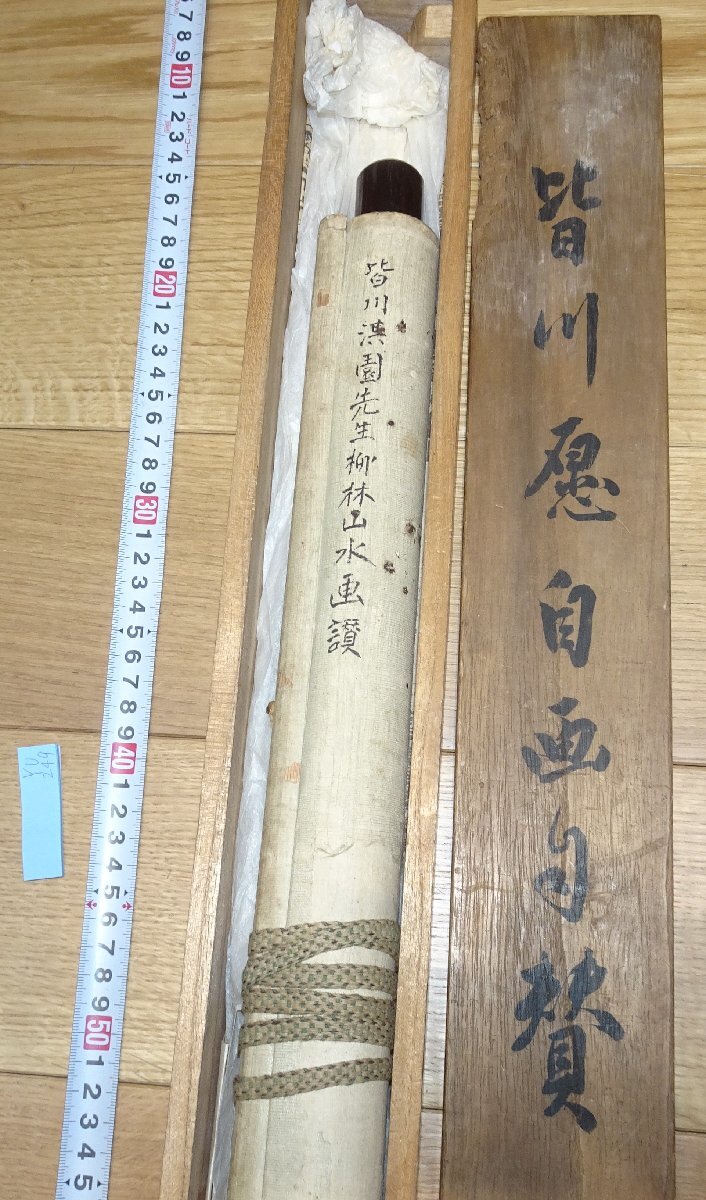 皆川愿自画自賛
皆川淇園先生柳林山水画讃
7 8 9 10 1 2 3 4 5 6 7 8 9 20 1 2 3 4 5 6 7 8 9 30 1 2 3 4 5 6 7 8 9 40 1 2 3 4 5 6 7 8 9 50 1 2 3 4 5